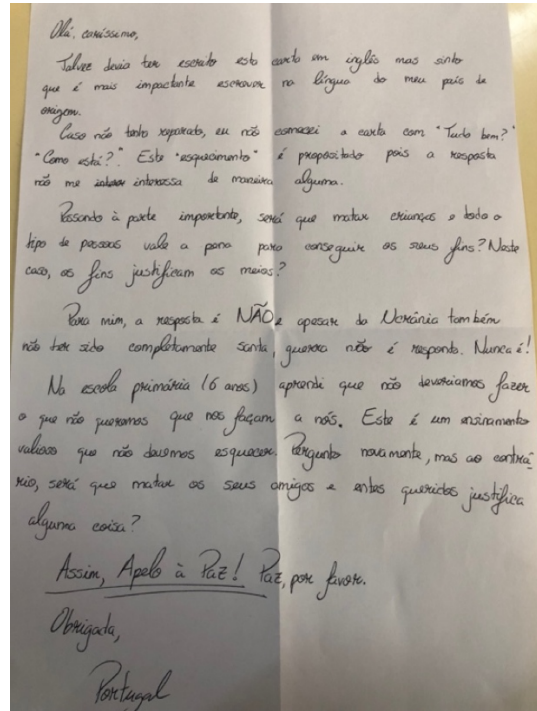 Olá, caríssimo,
Talvez devia ter escrito esta carta em inglês mas sinto
que é mais impactante escrever na língua do meu país de
origem.
Caso não tenha reparado, eu não comecei a carta com "Tudo bem?"
"Como está?" Este "esquecimento" é propositado pois a resposta
não me interessa de maneira alguma.
Passando à parte importante, será que matar crianças e todo o
tipo de pessoas vale a pena para conseguir os seus fins? Neste
caso, os fins justificam os meios?
Para mim, a resposta é NÃO e apesar da Ucrânia também
não ter sido completamente santa, guerra não é resposta. Nunca é!
Na escola primária (6 anos) aprendi que não deveríamos fazer
o que não queremos que nos façam a nós. Este é um ensinamento
valioso que não devemos esquecer. Pergunto novamente, mas ao contrá-
rio, será que matar os seus amigos e entes queridos justifica
alguma coisa?
Assim, Apelo à Paz! Paz, por favor.
Obrigada,
Portugal